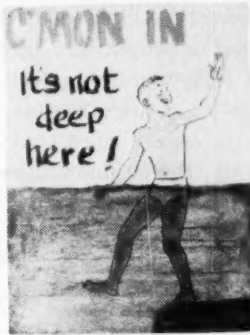 C'MON IN
It's not
deep
here!